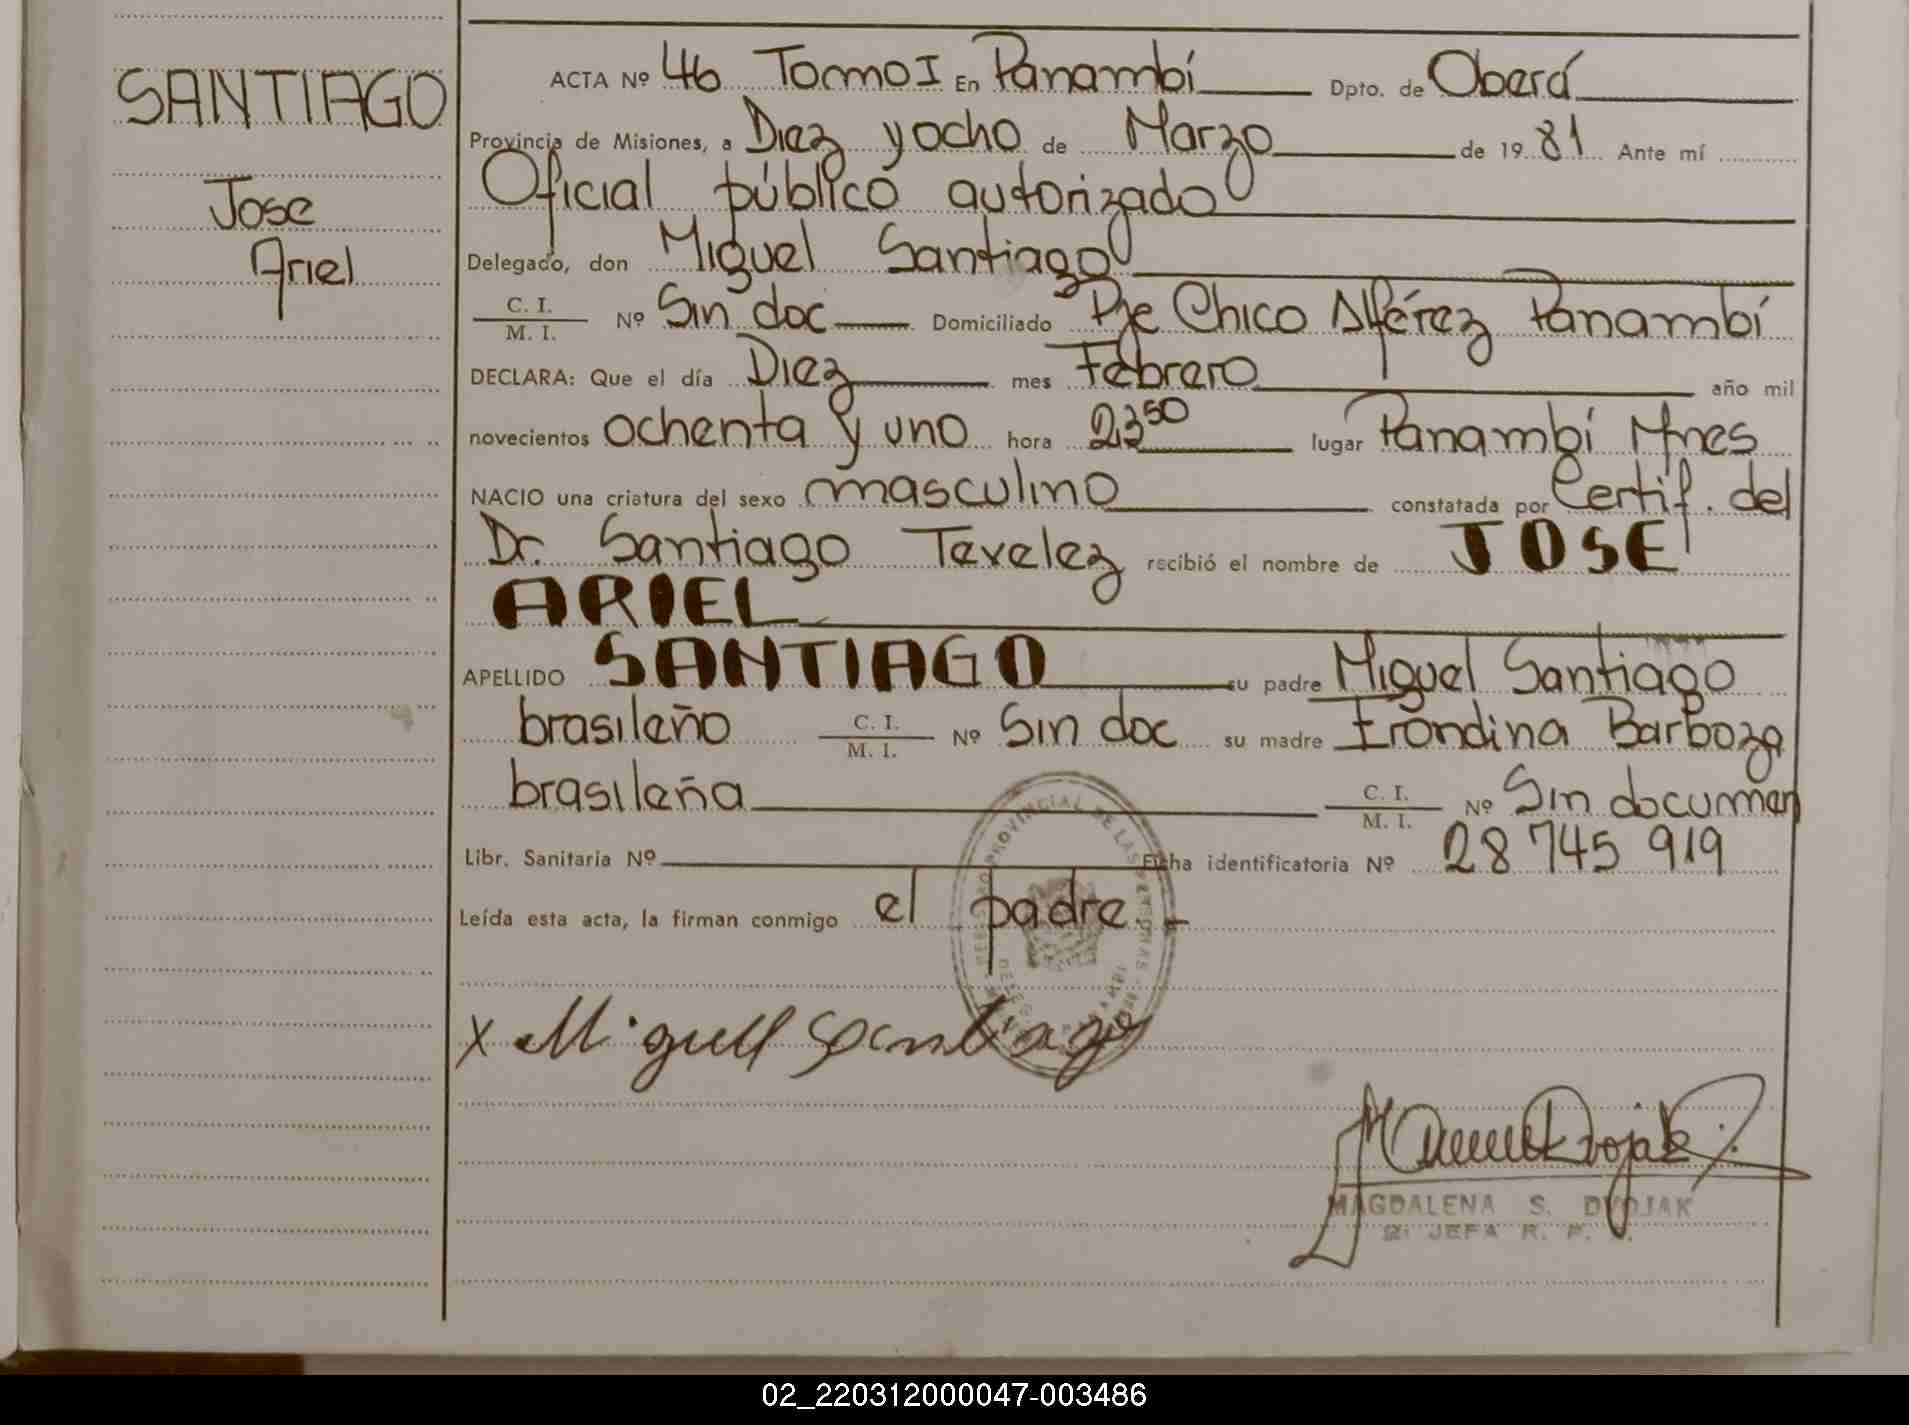 SANTIAGO
Jose
Ariel
ACTA Nº 46 Tomo I En Panambí Dpto. de Oberá
Provincia de Misiones, a Diez y ocho de Marzo de 19 81 Ante mí
Oficial público autorizado
Delegado, don Miguel Santiago
C. I.
M. I. Nº Sin doc Domiciliado Pje Chico Alférez Panambí
DECLARA: Que el día Diez mes Febrero año mil
novecientos ochenta y uno hora 23 50 lugar Panambí Mnes
NACIO una criatura del sexo masculino constatada por Certif. del
Dr. Santiago Tevelez recibió el nombre de JOSE
ARIEL
APELLIDO SANTIAGO su padre Miguel Santiago
brasileño C. I.
M. I. Nº Sin doc su madre Erondina Barboza
brasileña C. I.
M. I. Nº Sin documen
Libr. Sanitaria Nº Ficha identificatoria Nº 28 745 919
Leída esta acta, la firman conmigo el padre.-
x Miguell Santiago
MAGDALENA S. DVOJAK
JEFA R. P.
02_220312000047-003486